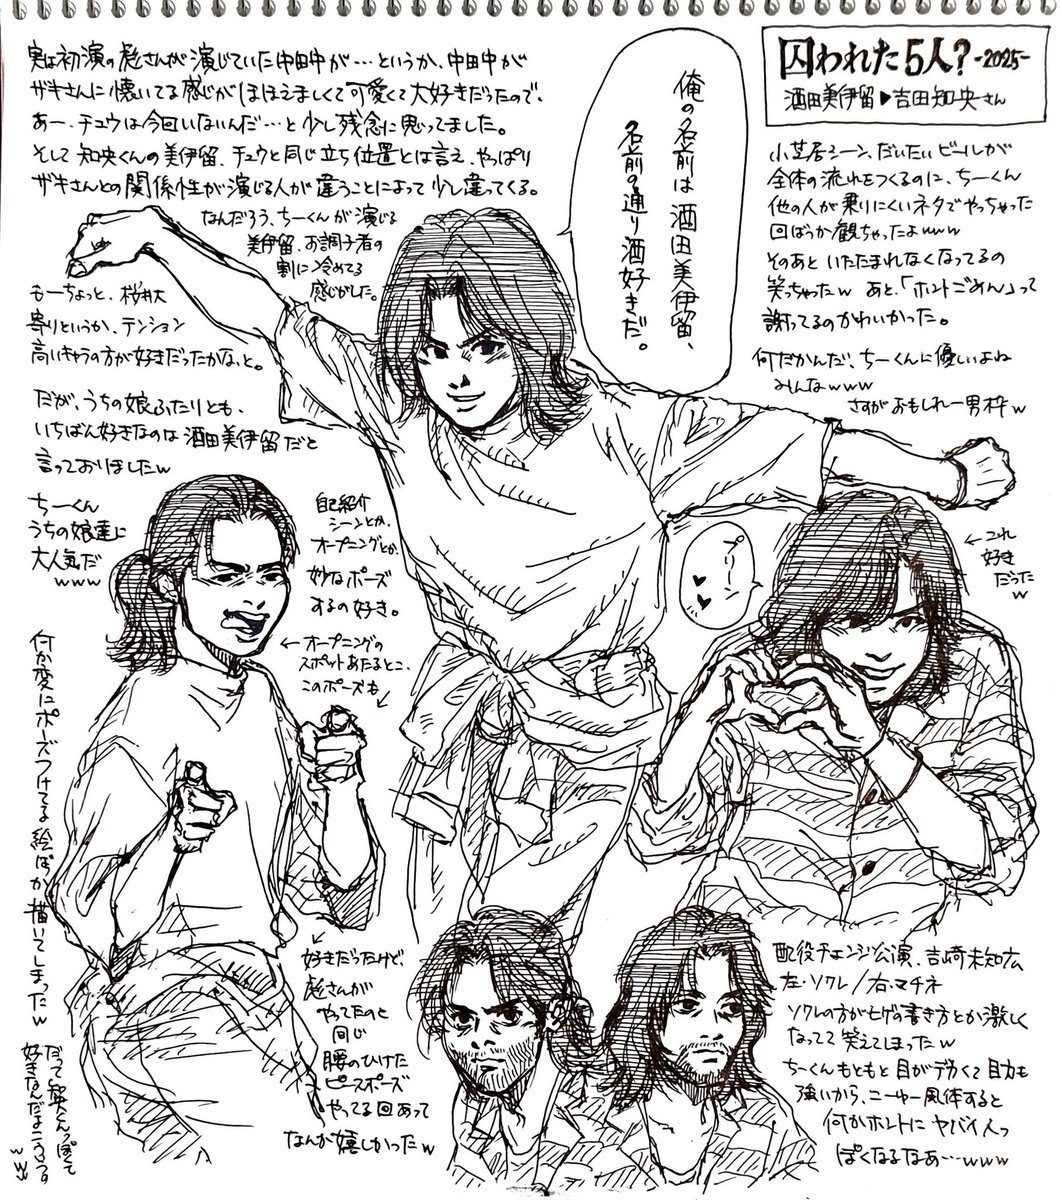 囚われた5人?-2025-
酒田美伊留▶吉田知央さん
実は初演の彪さんが演じていた中田中が…というか、中田中が
ザキさんに懐いてる感じがほほえましくて可愛くて大好きだったので、
あー、チュウは今回いないんだ…と少し残念に思ってました。
そして知央くんの美伊留、チュウと同じ立ち位置とは言え、やっぱり
ザキさんとの関係性が演じる人が違うことによって少し違ってくる。
なんだろう、ちーくんが演じる
美伊留、お調子者の
割に冷めてる
感じがした。
もーちょっと、桜井大
寄りというか、テンション
高いキャラの方が好きだったかな、と。
だが、うちの娘ふたりとも、
いちばん好きなのは酒田美伊留だと
言っておりましたw
ちーくん
うちの娘達に
大人気だ
www
俺の名前は酒田美伊留、
名前の通り酒好きだ。
小芝居シーン、だいたいビールが
全体の流れをつくるのに、ちーくん
他の人が乗りにくいネタでやっちゃった
回ばっか観ちゃったよwww
そのあといたたまれなくなってるの
笑っちゃったw あと、「ホントごめん」って
謝ってるのかわいかった。
何だかんだ、ちーくんに優しいよね
みんなwww
さすがおもしれー男枠w
自己紹介
シーンとか、
オープニングとか、
妙なポーズ
するの好き。
←オープニングの
スポットあたるとこ、
このポーズも↙
←これ
好き
だった
w
何か変にポーズつけてる絵ばっか描いてしまったw
好きだったけど、
彪さんが
やってたのと
同じ
腰のひけた
ピースポーズ
やってる回あって
なんか嬉しかったw
配役チェンジ公演、吉崎未知広
左・ソワレ/右・マチネ
ソワレの方がヒゲの書き方とか激しく
なってて笑えてしまったw
ちーくんもともと目がデカくて目力も
強いから、こーゆー風体すると
何かホントにヤバイ人っ
ぽくなるなあ…www